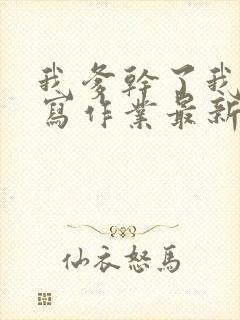 我爹幹了我
寫作業最新
仙衣怒馬